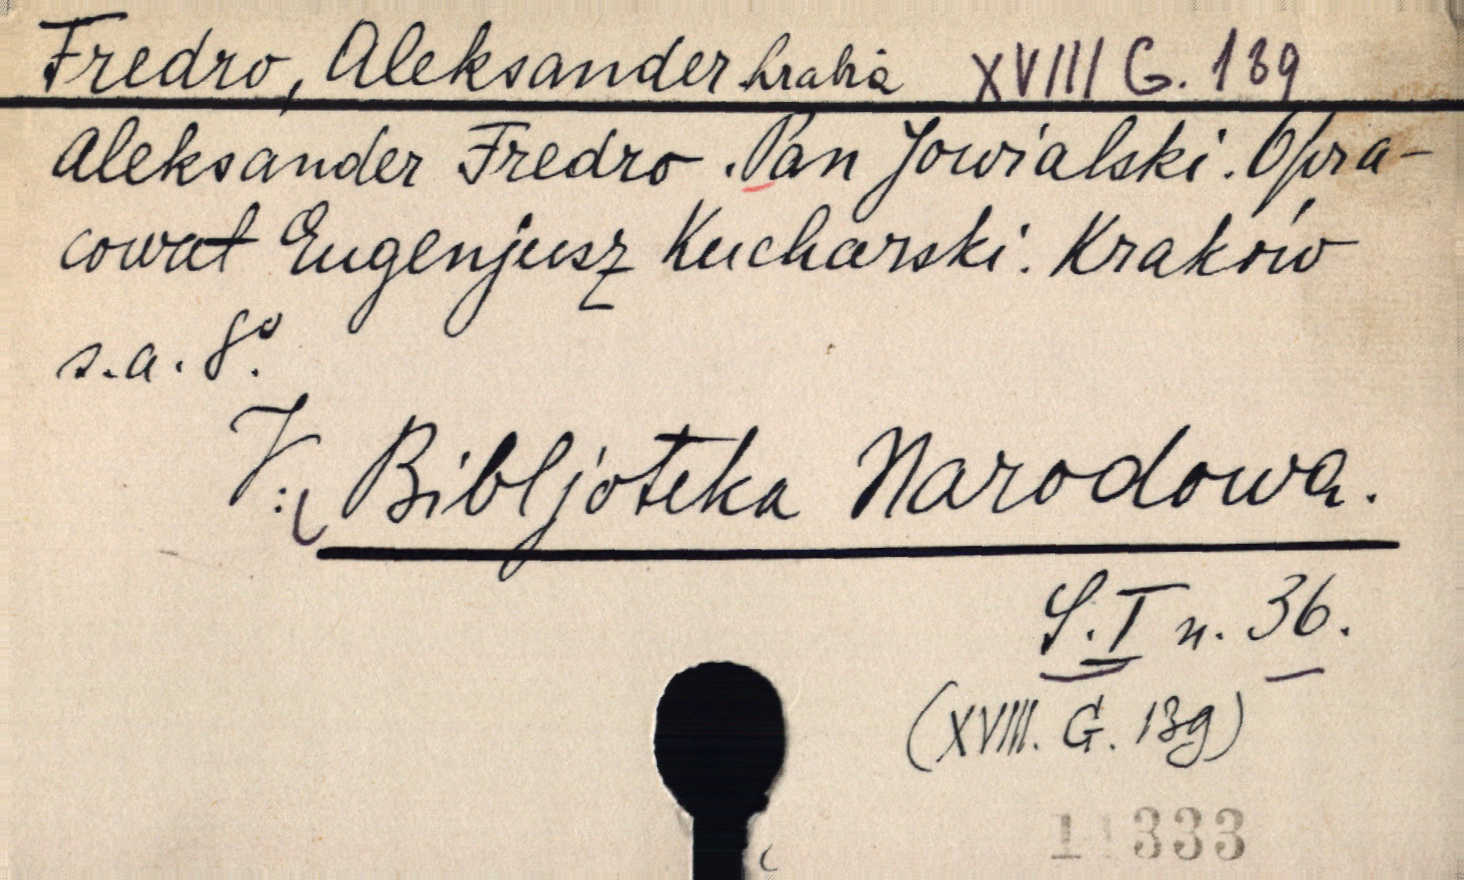 Fredro, Aleksander hrabia XVIII G. 139
Aleksander Fredro. Pan Jowialski. Opra-
cował Eugenjusz Kucharski. Kraków
s.a. 8°.
V: Bibljoteka Narodowa.
S. I n. 36.
(XVIII. G. 139)
11333